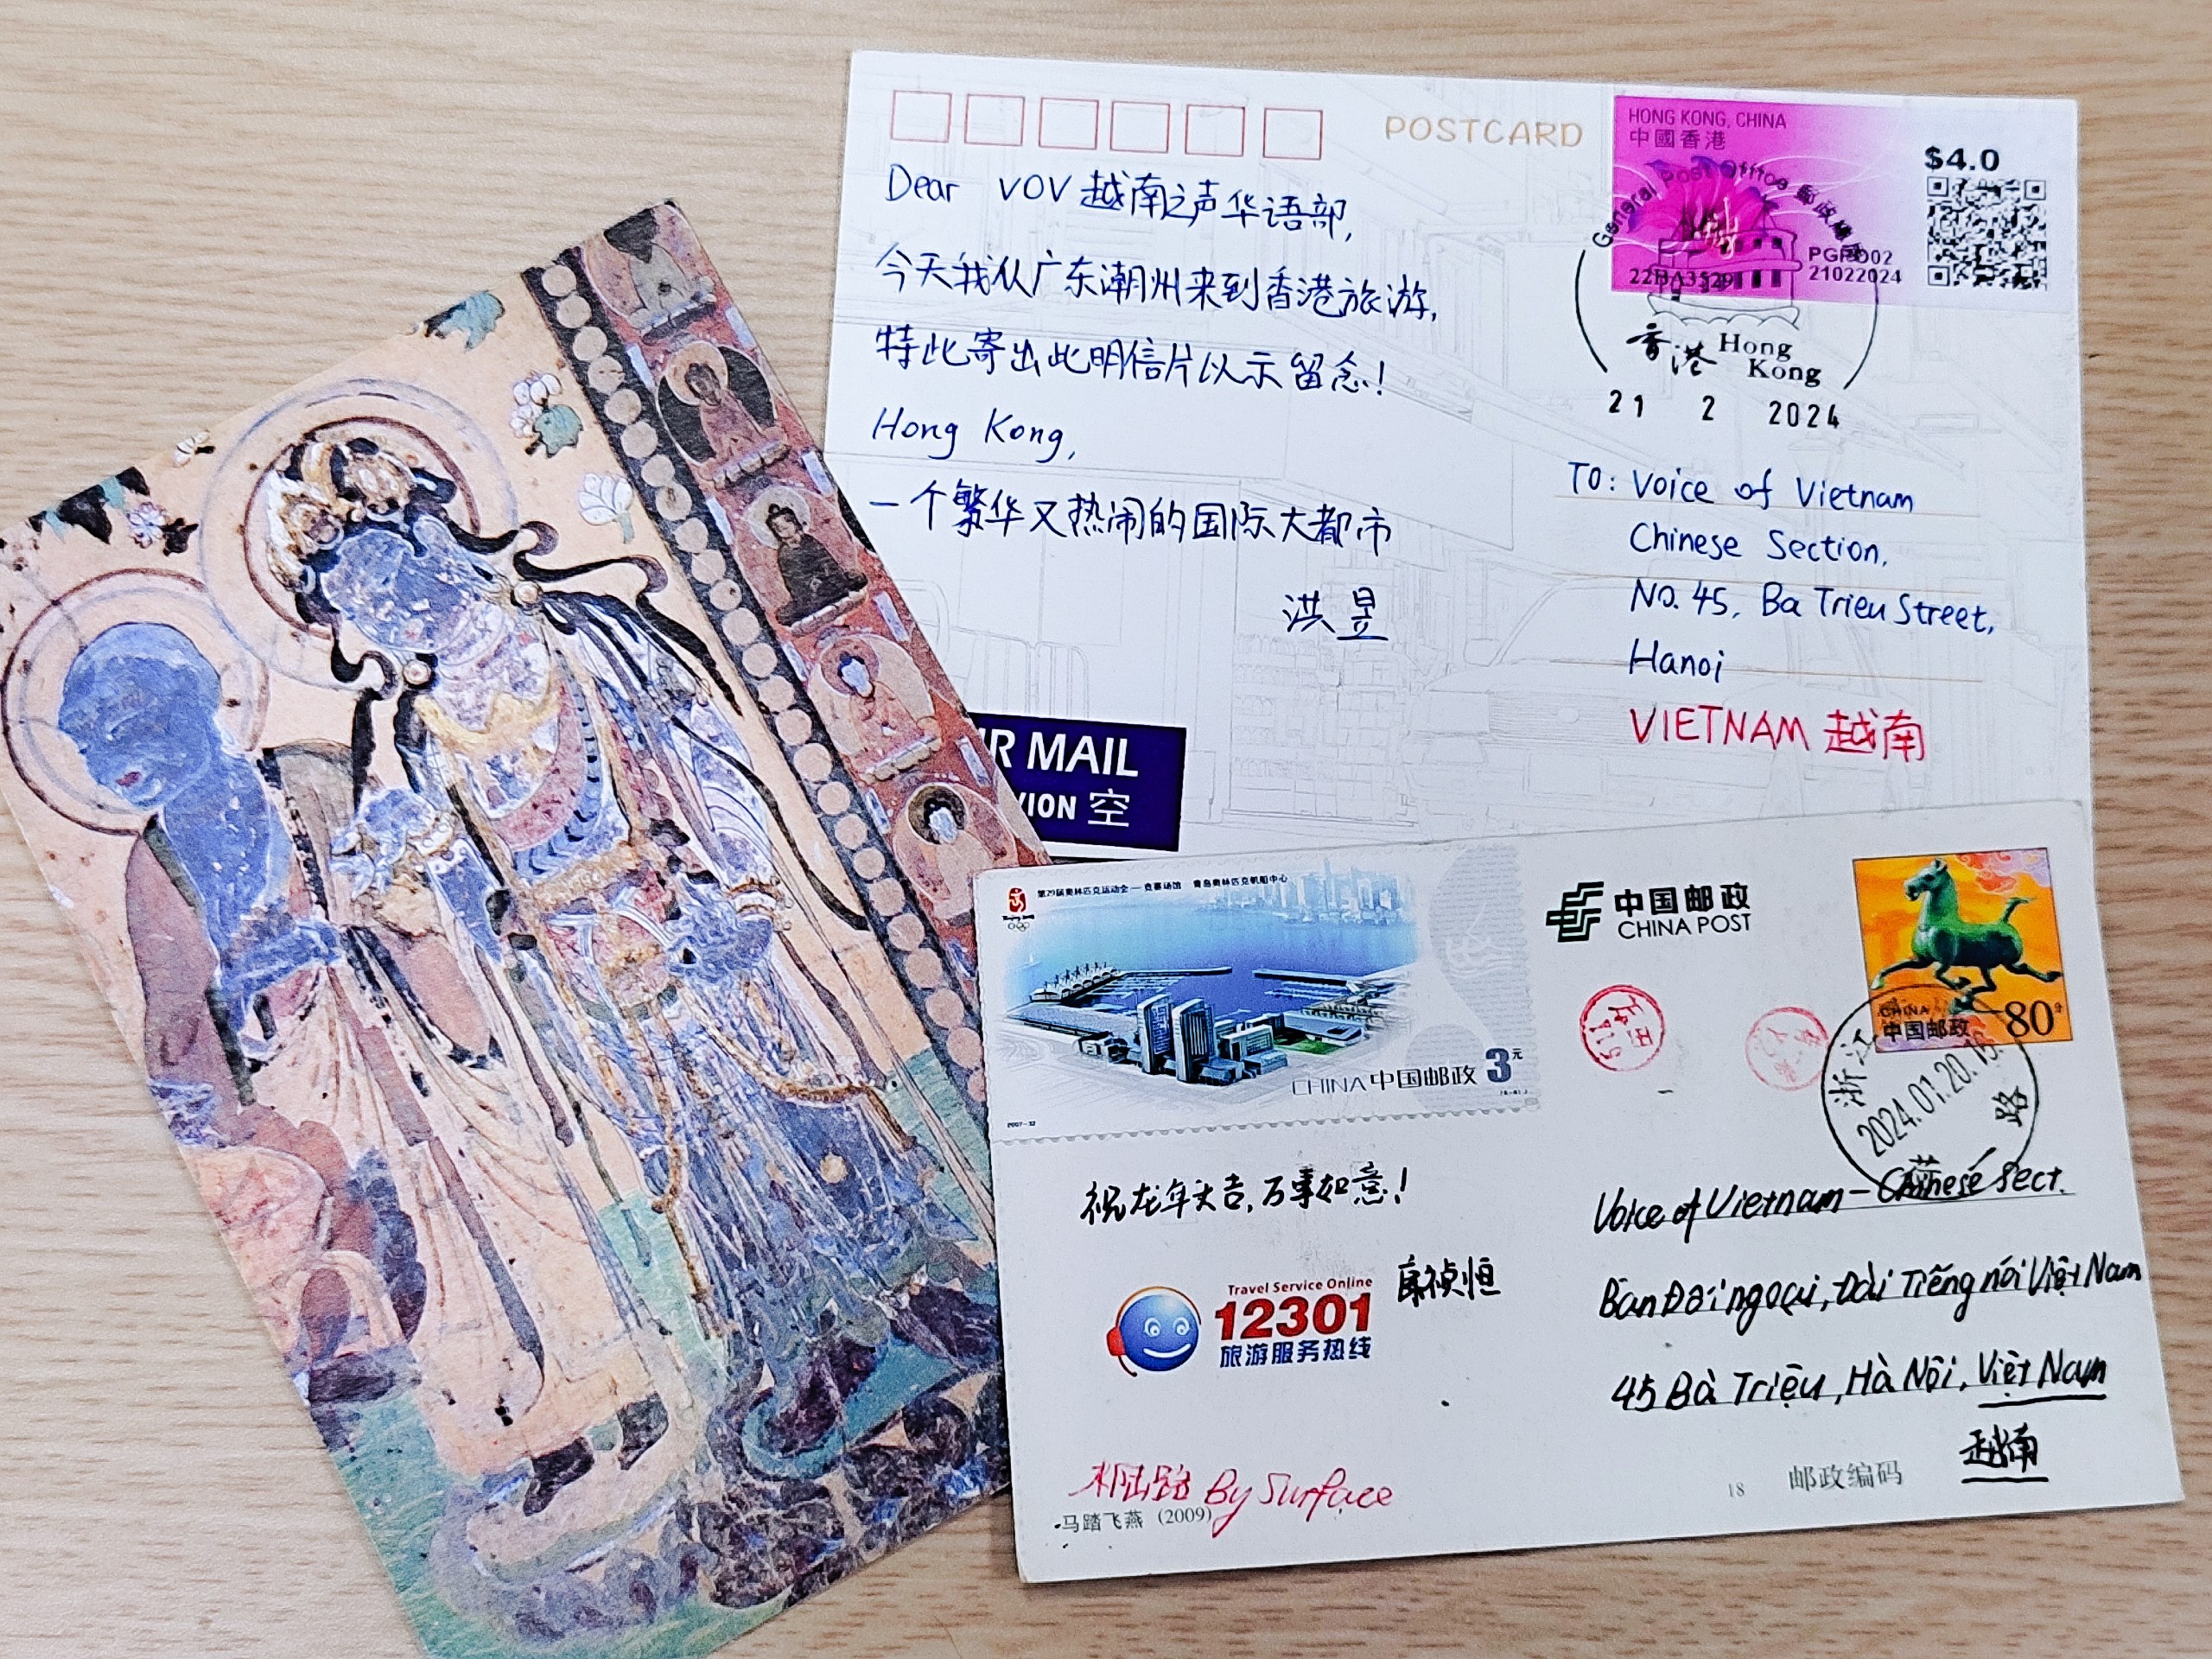 POSTCARD
HONG KONG, CHINA
中國香港
$4.0
General Post Office 郵政總局
PGPO02
22BA3529
21022024
香港 Hong Kong
21 2 2024
Dear VOV 越南之声华语部,
今天我从广东潮州来到香港旅游,
特此寄出此明信片以示留念!
Hong Kong,
一个繁华又热闹的国际大都市
洪昱
TO: Voice of Vietnam
Chinese Section,
No. 45, Ba Trieu Street,
Hanoi
VIETNAM 越南
R MAIL
VION 空
第29届奥林匹克运动会—竞赛场馆 青岛奥林匹克帆船中心
Beijing 2008
CHINA 中国邮政 3元
2007-32
中国邮政
CHINA POST
CHINA
中国邮政 80分
浙江
2024.01.20.15
路
祝龙年大吉,万事如意!
康祯恒
Travel Service Online
12301
旅游服务热线
Voice of Vietnam – Chinese Sect.
Ban Đối ngoại, Đài Tiếng nói Việt Nam
45 Bà Triệu, Hà Nội, Việt Nam
越南
By Surface
马踏飞燕 (2009)
18 邮政编码